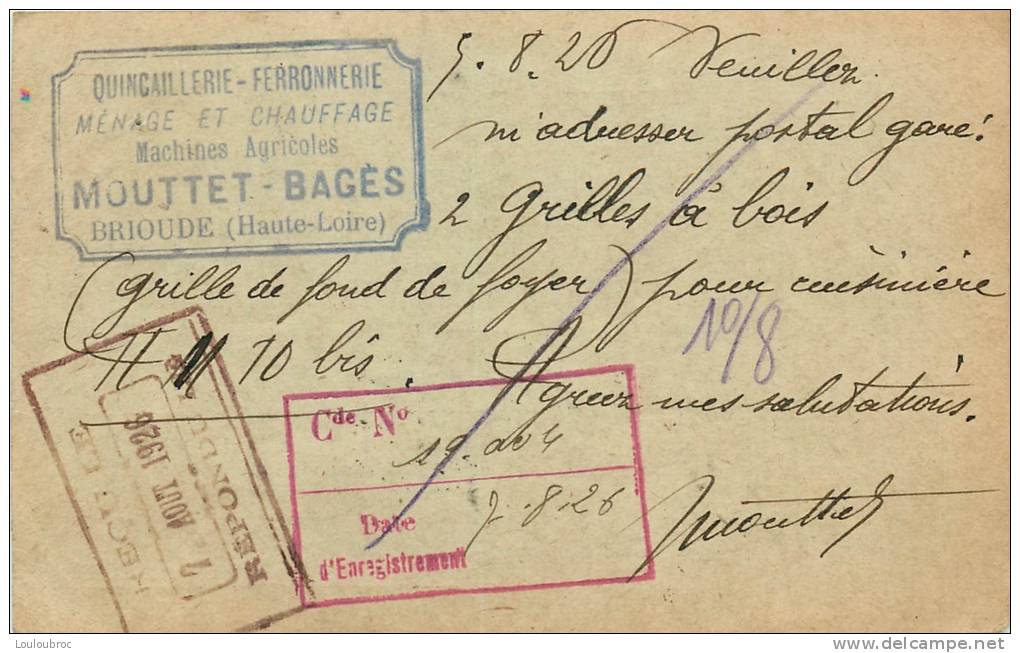 QUINCAILLERIE - FERRONNERIE
MÉNAGE ET CHAUFFAGE
Machines Agricoles
MOUTTET - BAGÈS
BRIOUDE (Haute-Loire)
5.8.26 Veuillez
m'adresser postal gare:
2 Grilles à bois
(grille de fond de foyer) pour cuisinière
10/8
70 bis.
Agréez mes salutations.
Cde No
Date
7.8.26
d'Enregistrement
Mouttet
REÇU LE
7 AOUT 1926
REPONDU
Louloubroc
www.delcampe.net